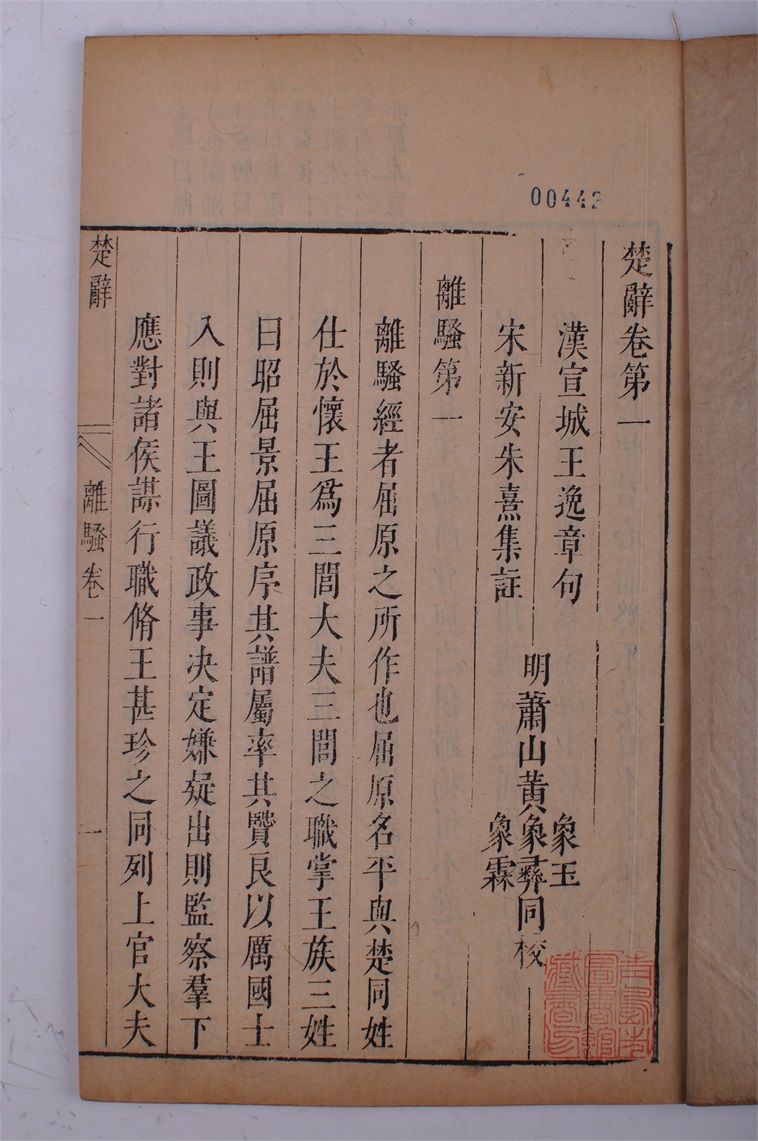 00442
楚辭卷第一
漢宣城王逸章句
宋新安朱熹集註
明蕭山黃象彞同校
象玉
象霖
離騷第一
離騷經者屈原之所作也屈原名平與楚同姓
仕於懷王爲三閭大夫三閭之職掌王族三姓
曰昭屈景屈原序其譜屬率其賢良以厲國士
入則與王圖議政事決定嫌疑出則監察羣下
應對諸侯謀行職脩王甚珍之同列上官大夫
楚辭
離騷卷一
一
青島市圖書館藏書印